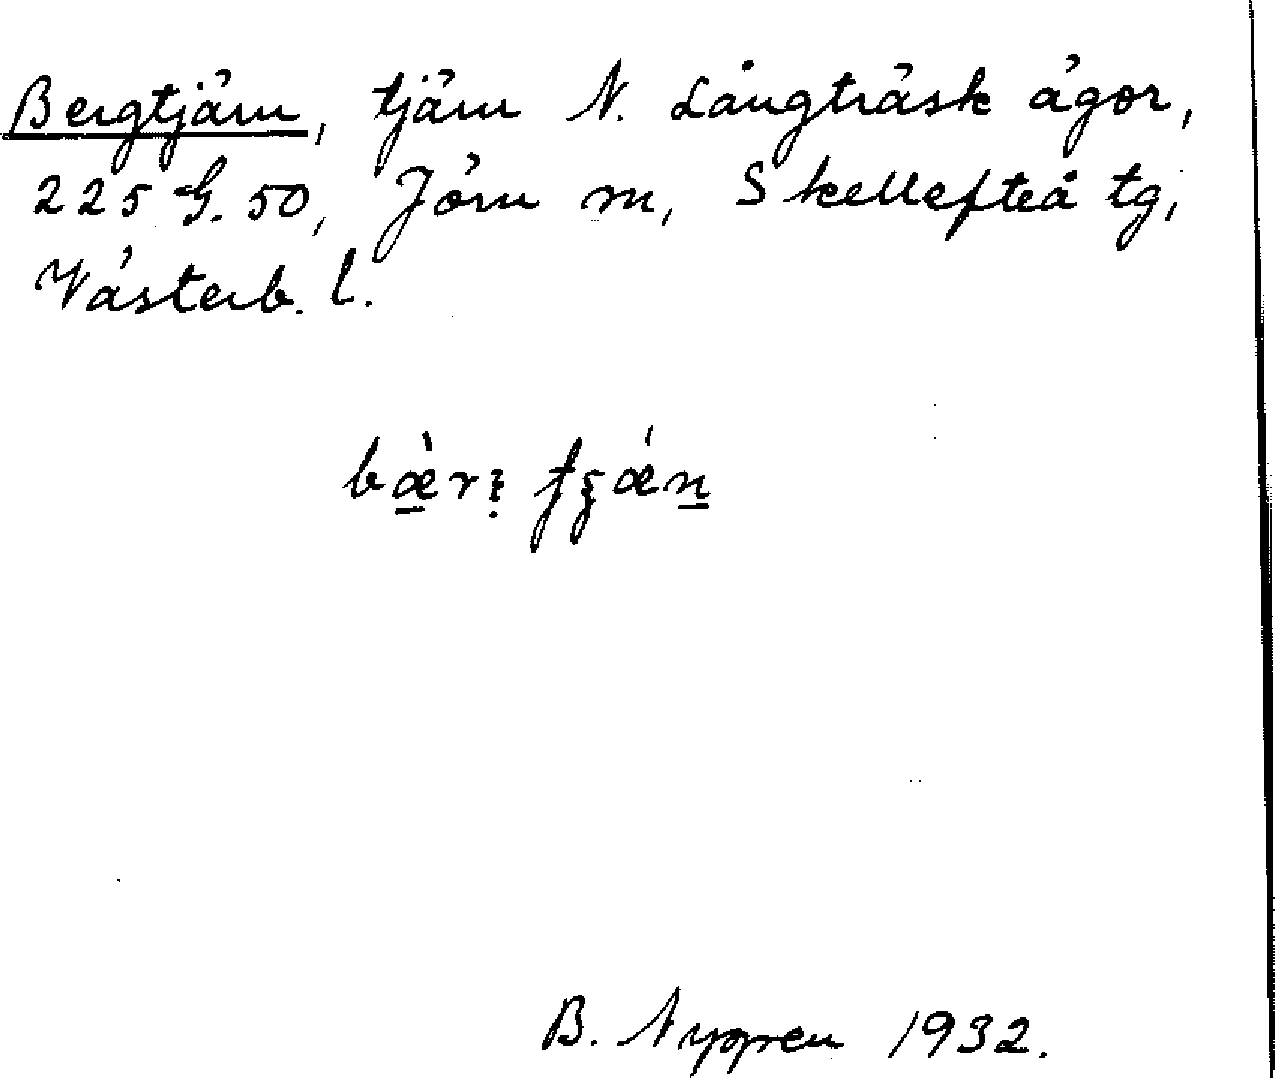 Bergtjärn, tjärn N. Långträsk ägor,
225 G. 50, Jörn m, Skellefteå tg,
Västerb. l.
B. Nygren 1932.